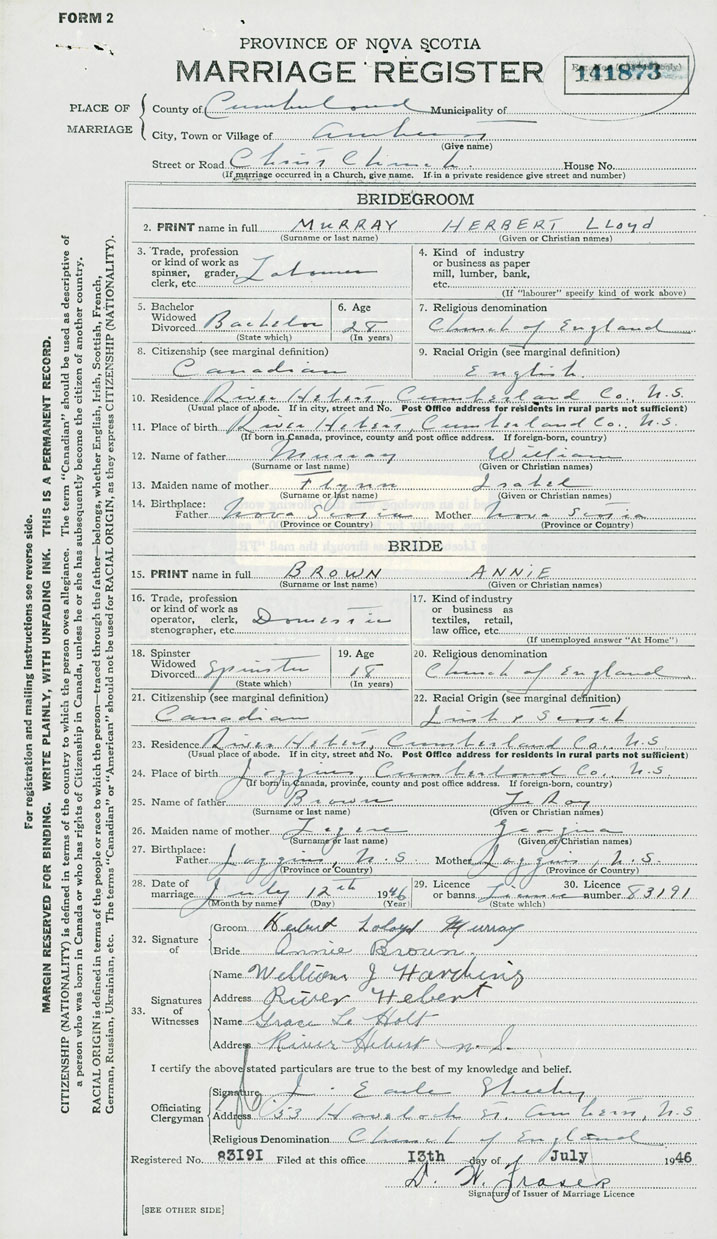 FORM 2
PROVINCE OF NOVA SCOTIA
MARRIAGE REGISTER
141873
PLACE OF MARRIAGE
County of Cumberland Municipality of
City, Town or Village of Amherst
(Give name)
Street or Road Christ Church House No.
(If marriage occurred in a Church, give name. If in a private residence give street and number)
BRIDEGROOM
2. PRINT name in full MURRAY HERBERT LLoyd
(Surname or last name) (Given or Christian names)
3. Trade, profession or kind of work as spinner, grader, clerk, etc. Labourer
4. Kind of industry or business as paper mill, lumber, bank, etc.
(If "labourer" specify kind of work above)
5. Bachelor Widowed Divorced Bachelor
(State which)
6. Age 28
(In years)
7. Religious denomination
Church of England
8. Citizenship (see marginal definition)
Canadian
9. Racial Origin (see marginal definition)
English.
10. Residence River Hebert, Cumberland Co., N.S.
(Usual place of abode. If in city, street and No. Post Office address for residents in rural parts not sufficient)
11. Place of birth River Hebert, Cumberland Co., N.S.
(If born in Canada, province, county and post office address. If foreign-born, country)
12. Name of father Murray William
(Surname or last name) (Given or Christian names)
13. Maiden name of mother Flynn Isabel
(Surname or last name) (Given or Christian names)
14. Birthplace: Father Nova Scotia Mother Nova Scotia
(Province or Country) (Province or Country)
BRIDE
15. PRINT name in full BROWN ANNIE
(Surname or last name) (Given or Christian names)
16. Trade, profession or kind of work as operator, clerk, stenographer, etc. Domestic
17. Kind of industry or business as textiles, retail, law office, etc.
(If unemployed answer "At Home")
18. Spinster Widowed Divorced Spinster
(State which)
19. Age 18
(In years)
20. Religious denomination
Church of England
21. Citizenship (see marginal definition)
Canadian
22. Racial Origin (see marginal definition)
Irish & Scotch
23. Residence River Hebert, Cumberland Co., N.S.
(Usual place of abode. If in city, street and No. Post Office address for residents in rural parts not sufficient)
24. Place of birth Joggins, Cumberland Co., N.S.
(If born in Canada, province, county and post office address. If foreign-born, country)
25. Name of father Brown LeRoy
(Surname or last name) (Given or Christian names)
26. Maiden name of mother Georgina
(Surname or last name) (Given or Christian names)
27. Birthplace: Father Joggins, N.S. Mother Joggins, N.S.
(Province or Country) (Province or Country)
28. Date of marriage July 12th 1946
(Month by name) (Day) (Year)
29. Licence or banns License
(State which)
30. Licence number 83191
32. Signature of
Groom Herbert Lloyd Murray
Bride Annie Brown.
33. Signatures of Witnesses
Name William J Harding
Address River Hebert
Name Grace Le Holt
Address River Hebert N.S.
I certify the above stated particulars are true to the best of my knowledge and belief.
Officiating Clergyman
Signature J. Earle
Address 53 Havelock St. Amherst, N.S.
Religious Denomination Church of England
Registered No. 83191 Filed at this office 13th day of July 1946
D. W. Fraser
Signature of Issuer of Marriage Licence
[SEE OTHER SIDE]
For registration and mailing instructions see reverse side.
MARGIN RESERVED FOR BINDING. WRITE PLAINLY, WITH UNFADING INK. THIS IS A PERMANENT RECORD.
CITIZENSHIP (NATIONALITY) is defined in terms of the country to which the person owes allegiance. The term "Canadian" should be used as descriptive of
a person who was born in Canada or who has rights of Citizenship in Canada, unless he or she has subsequently become the citizen of another country.
RACIAL ORIGIN is defined in terms of the people or race to which the person—traced through the father—belongs, whether English, Irish, Scottish, French,
German, Russian, Ukrainian, etc. The terms "Canadian" or "American" should not be used for RACIAL ORIGIN, as they express CITIZENSHIP (NATIONALITY).